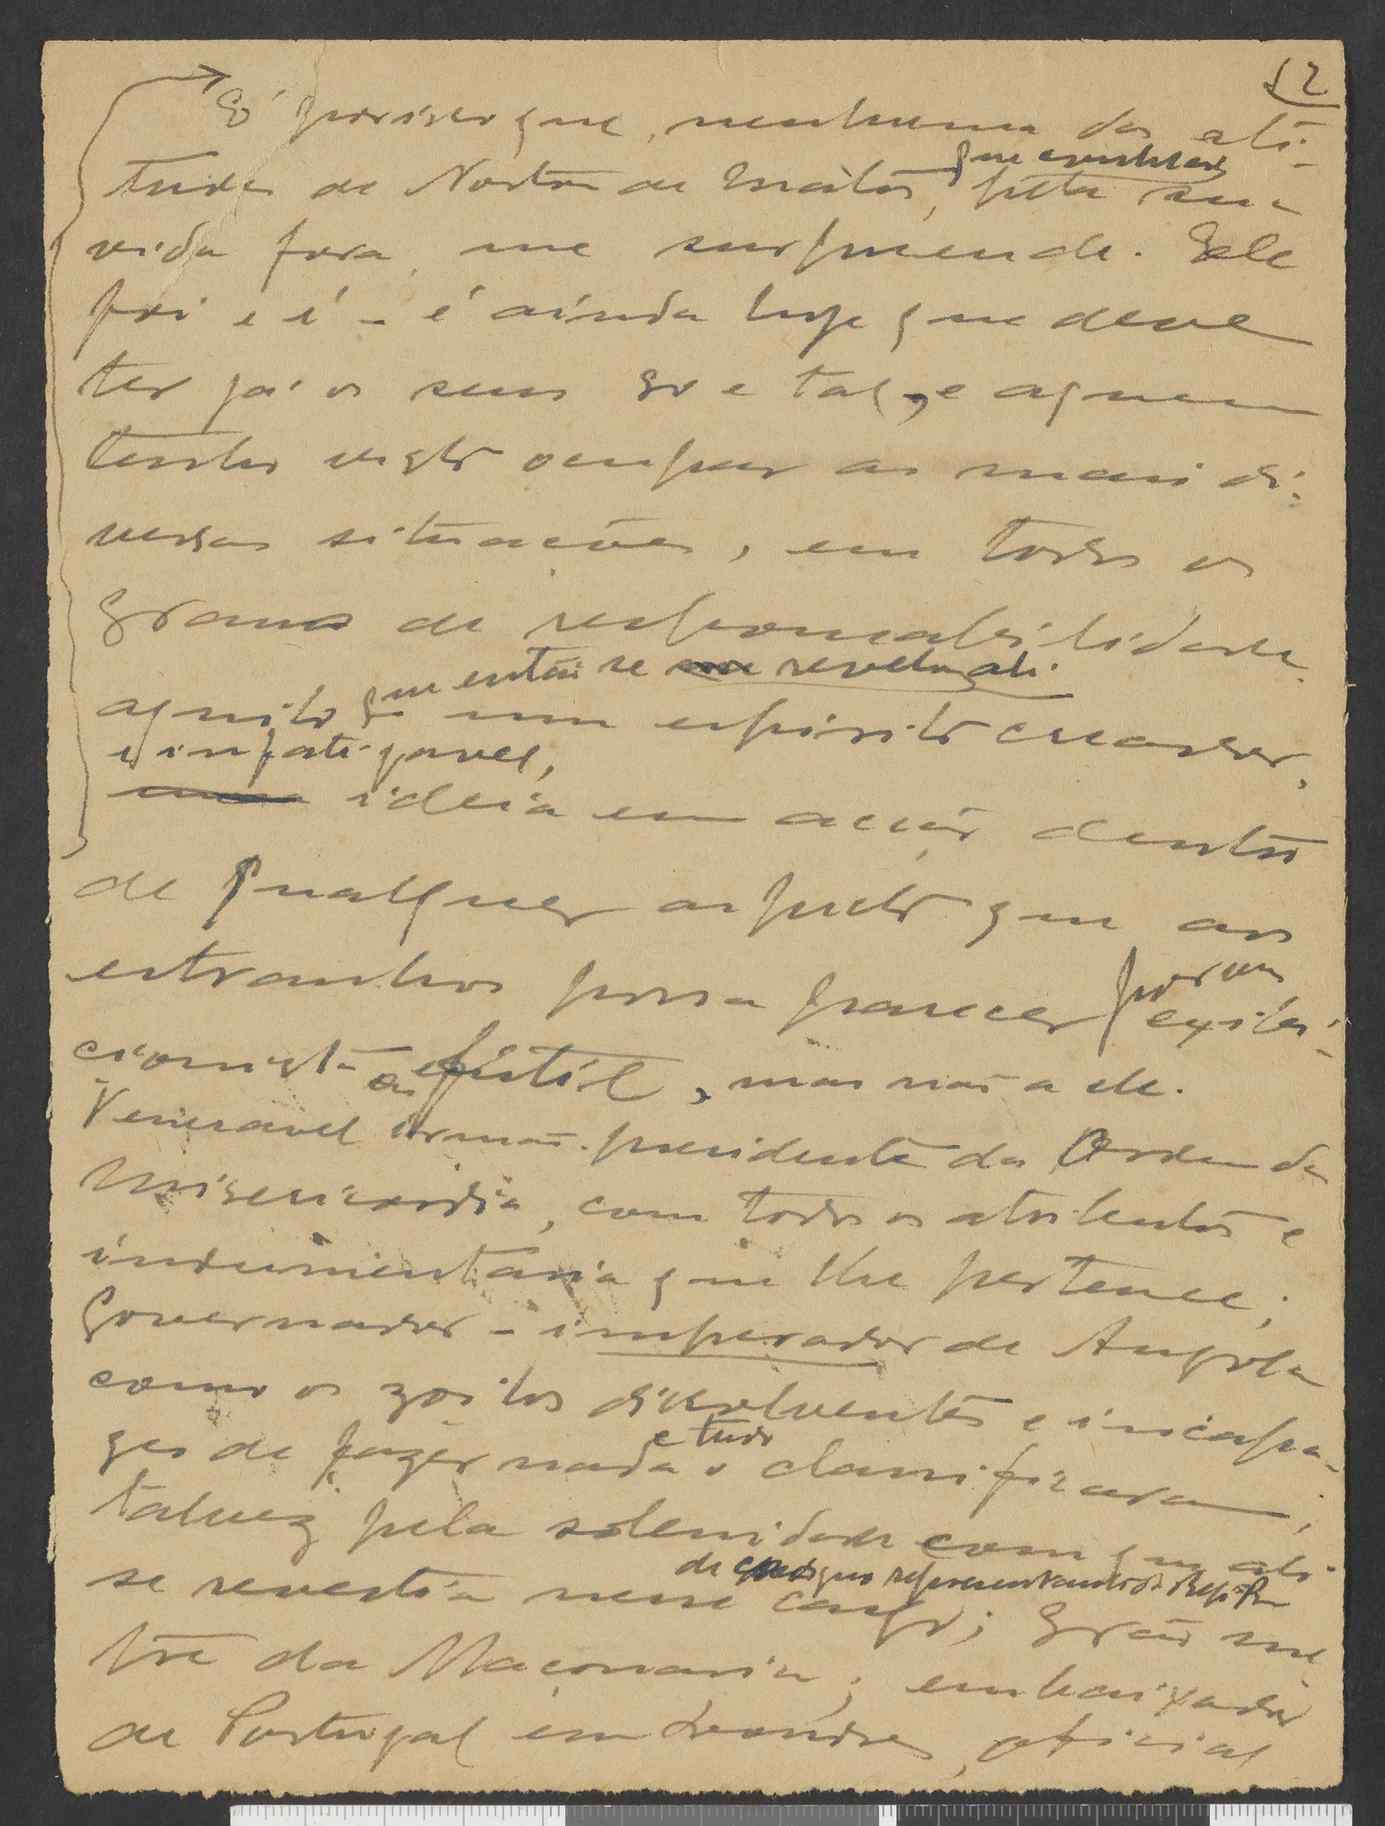 12
É por isso que, nenhuma das ati-
tudes de Norton de Matos, que conheço, pela sua
vida fora, me surpreende. Ele
foi e é - é ainda hoje que deve
ter já os seus 80 e tal, e a quem
tenho visto ocupar as mais di-
versas situações, em todos os
graus de responsabilidade,
aquilo que então se revelou ali:
um espirito creador,
e infatigavel,
ideia em acção dentro
de qualquer aspecto que aos
estranhos possa parecer por vezes exibi-
cionista ou futil, mas não a ele.
Veneravel irmão presidente da Ordem da
Misericordia, com todos os atributos e
indumentaria que lhe pertence;
Governador-imperador de Angola
como os zoilos dissolventes e incapa-
zes de fazer nada e tudo classificaram,
talvez pela solenidade com que ali
se revestia nesse cargo, de representante da Repca;
Grão mes
tre da Maçonaria; embaixador
de Portugal em Londres, oficial